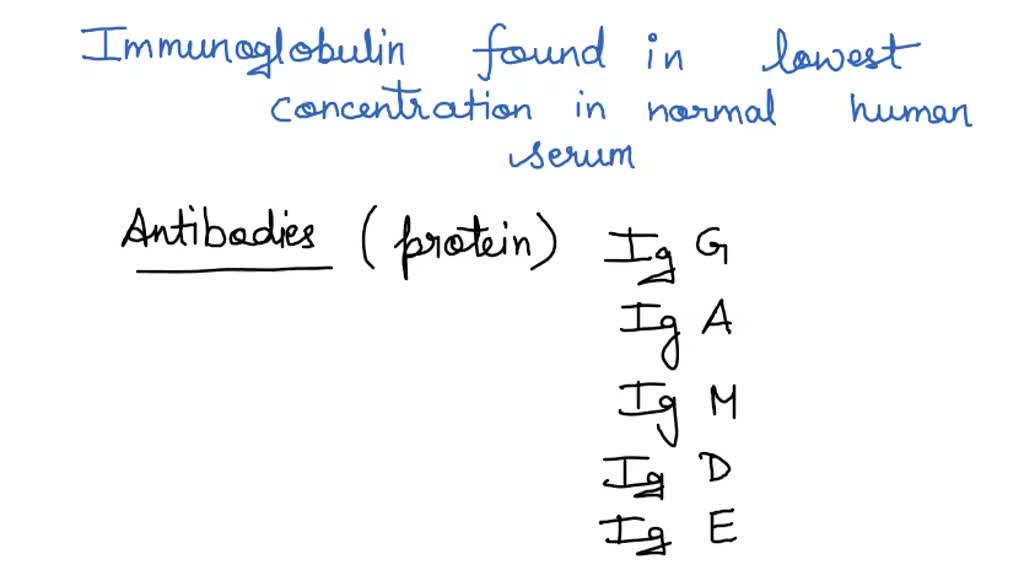 Immunoglobulin found in lowest
concentration in normal human
serum
Antibodies (protein) Ig G
Ig A
Ig M
Ig D
Ig E